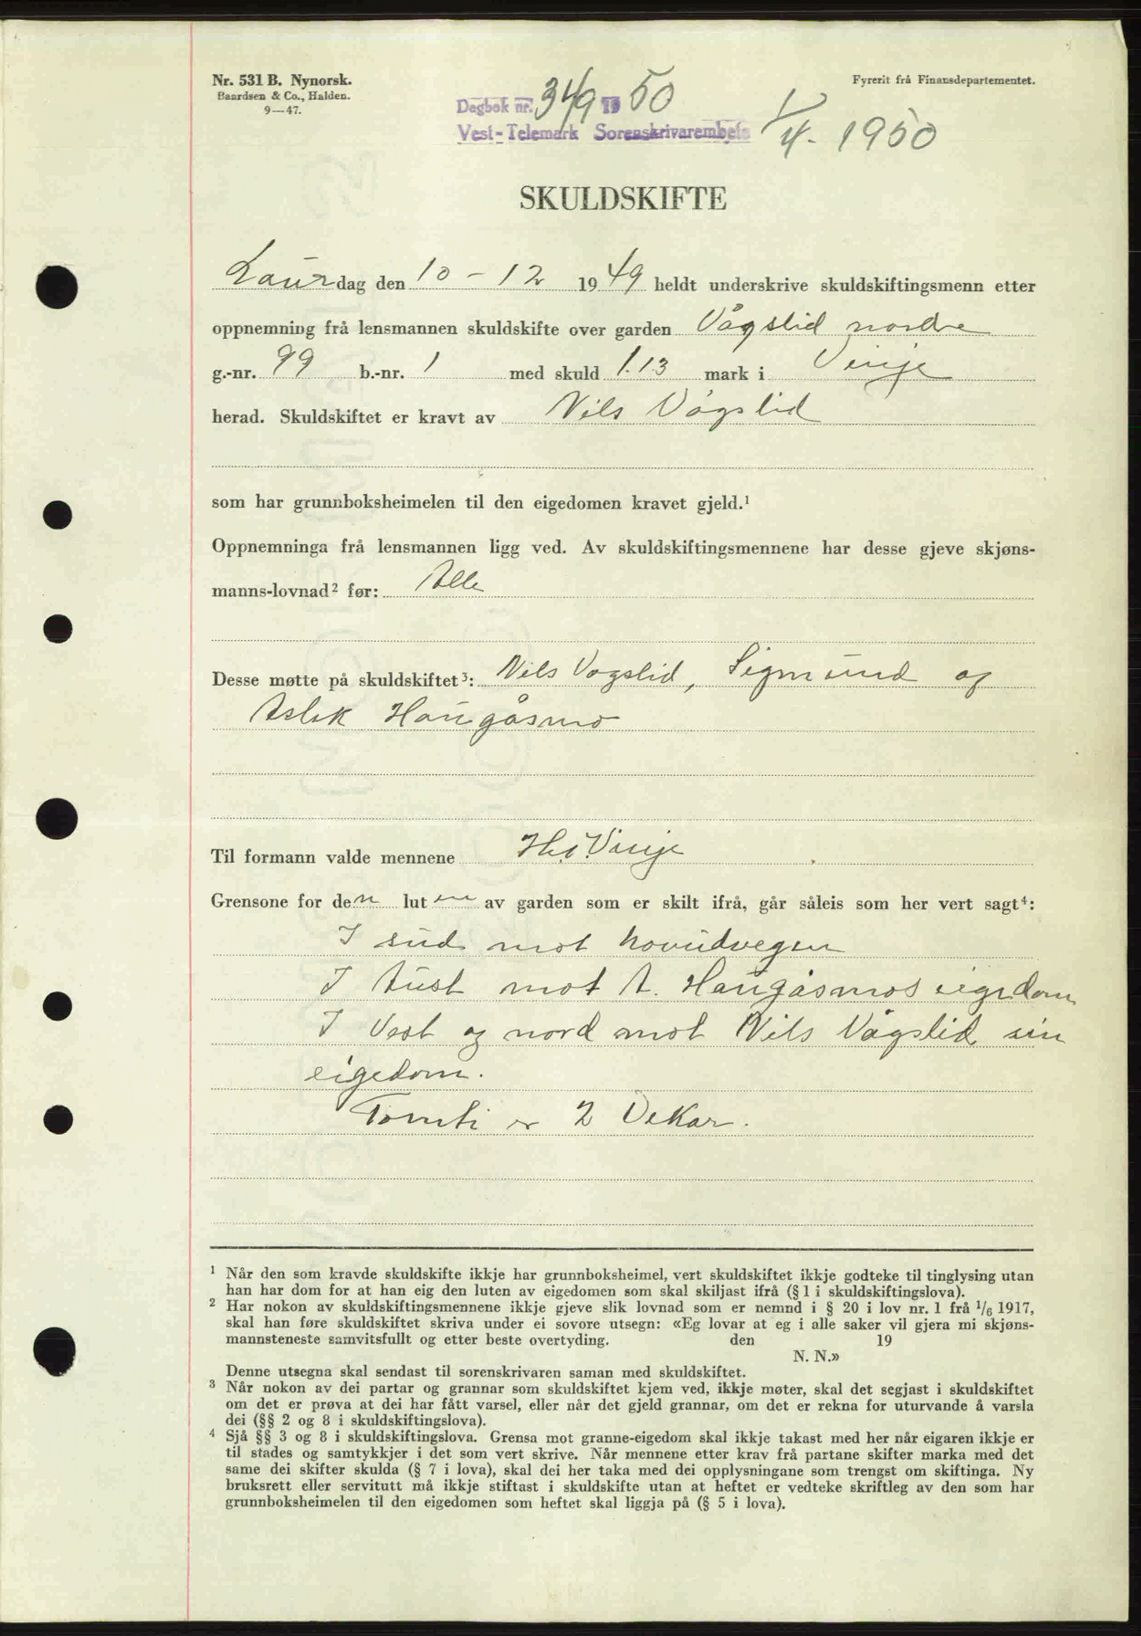 Nr. 531 B. Nynorsk.
Baardsen & Co., Halden.
9—47.
Fyrerit frå Finansdepartementet.
Dagbok nr. 349 19 50
Vest-Telemark Sorenskrivarembete
1/4. 1950
SKULDSKIFTE
Laurdag den 10 - 12 1949 heldt underskrive skuldskiftingsmenn etter
oppnemning frå lensmannen skuldskifte over garden Vågslid nordre
g.-nr. 99 b.-nr. 1 med skuld 1.13 mark i Vinje
herad. Skuldskiftet er kravt av Nils Vågslid
som har grunnboksheimelen til den eigedomen kravet gjeld.¹
Oppnemninga frå lensmannen ligg ved. Av skuldskiftingsmennene har desse gjeve skjøns-
manns-lovnad² før: Alle
Desse møtte på skuldskiftet³: Nils Vågslid, Sigmund og
Aslak Haugåsmo
Til formann valde mennene Vinje
Grensone for den luten av garden som er skilt ifrå, går såleis som her vert sagt⁴:
I sud mot hovudvegen
I Aust mot A. Haugåsmos eigedom
I Vest og nord mot Nils Vågslid sin
eigedom.
Tomti er 2 Dekar.
¹ Når den som kravde skuldskifte ikkje har grunnboksheimel, vert skuldskiftet ikkje godteke til tinglysing utan
han har dom for at han eig den luten av eigedomen som skal skiljast ifrå (§ 1 i skuldskiftingslova).
² Har nokon av skuldskiftingsmennene ikkje gjeve slik lovnad som er nemnd i § 20 i lov nr. 1 frå 1/6 1917,
skal han føre skuldskiftet skriva under ei sovore utsegn: «Eg lovar at eg i alle saker vil gjera mi skjøns-
mannsteneste samvitsfullt og etter beste overtyding. den 19
N. N.»
Denne utsegna skal sendast til sorenskrivaren saman med skuldskiftet.
³ Når nokon av dei partar og grannar som skuldskiftet kjem ved, ikkje møter, skal det segjast i skuldskiftet
om det er prøva at dei har fått varsel, eller når det gjeld grannar, om det er rekna for uturvande å varsla
dei (§§ 2 og 8 i skuldskiftingslova).
⁴ Sjå §§ 3 og 8 i skuldskiftingslova. Grensa mot granne-eigedom skal ikkje takast med her når eigaren ikkje er
til stades og samtykkjer i det som vert skrive. Når mennene etter krav frå partane skifter marka med det
same dei skifter skulda (§ 7 i lova), skal dei her taka med dei opplysningane som trengst om skiftinga. Ny
bruksrett eller servitutt må ikkje stiftast i skuldskifte utan at heftet er vedteke skriftleg av den som har
grunnboksheimelen til den eigedomen som heftet skal liggja på (§ 5 i lova).